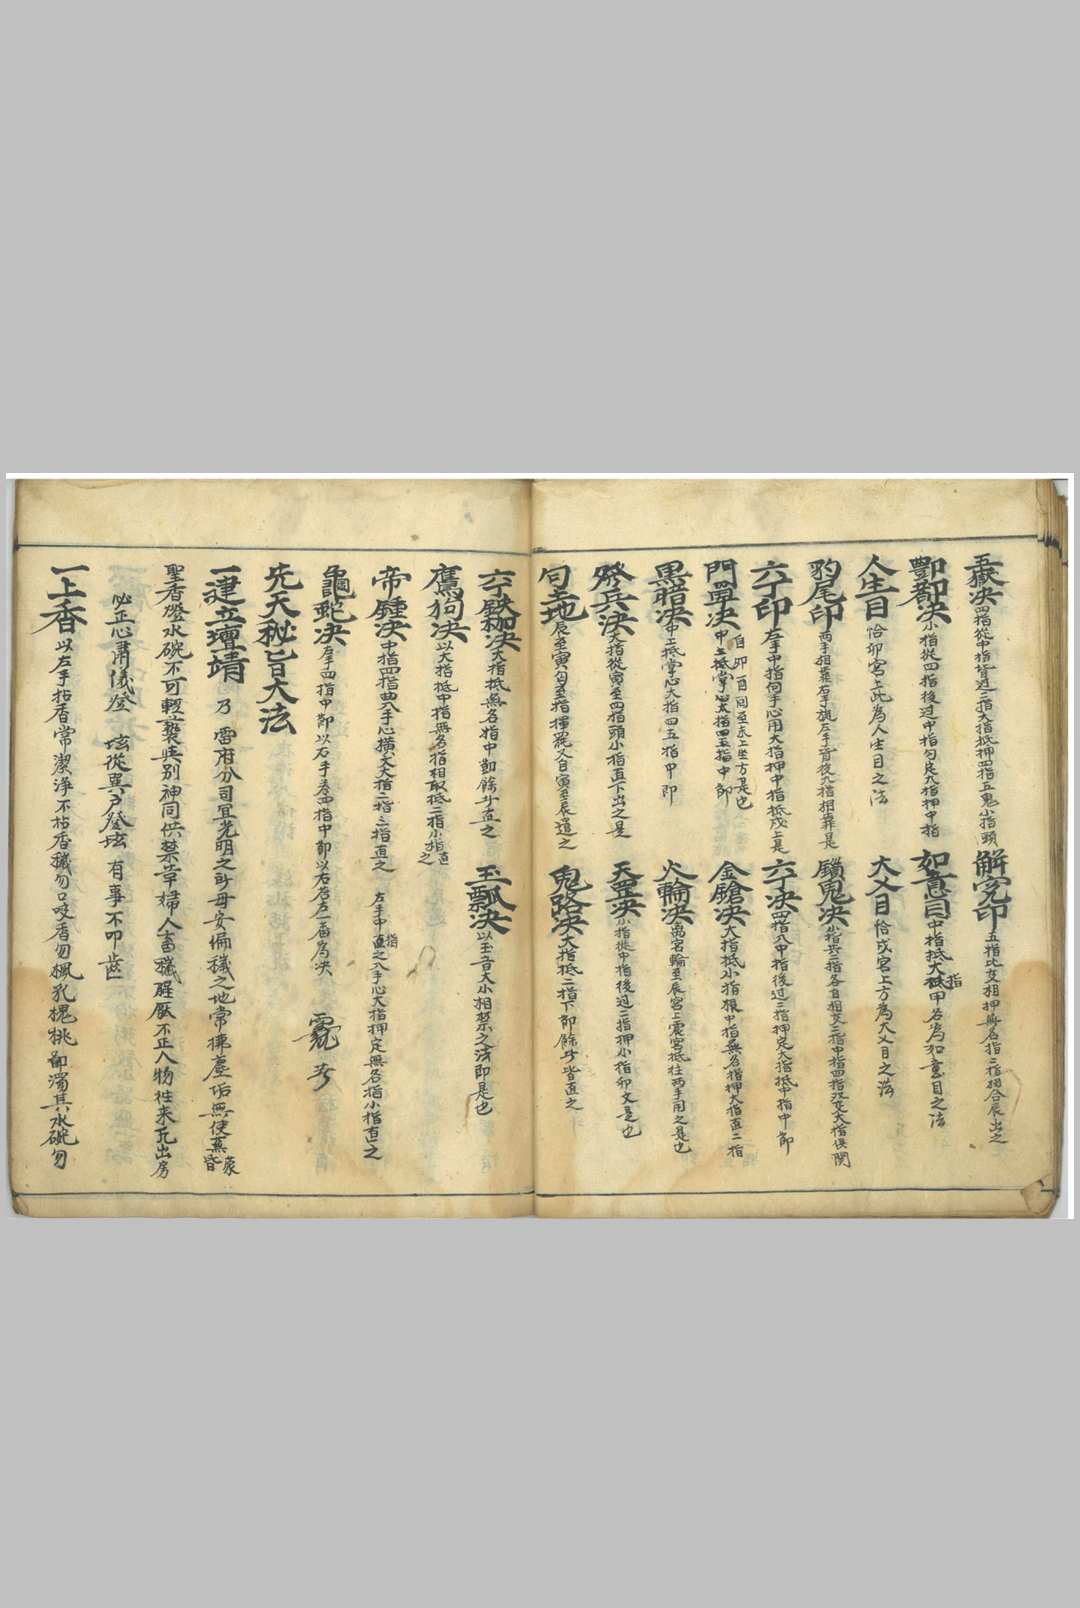 五嶽决 四指從中指背过二指大指抵押四指五鬼小指頭 解冤印 五指比交相押無名指二指相合辰出之
酆都决 小指從四指後过中指勾定大指押中指 如意目 中指抵大指甲名為如意目之法
人生目 恰卯宮上此為人生目之法 大乂目 恰戌宮上方為大乂目之法
豹尾印 两手相靠右手旋左手背後大指相靠是 鎖鬼决 小指與二指各自相交三指中指四指双交大指俠関
六丁印 左手中指向手心用大指押中指抵戌上是 六丁决 四指入甲指後过二指押定大指抵中指中節
門罡决 中上抵掌心大指四五指中節 自卯一自回至亥上坐方是也 金鎗决 大指抵小指根中指無名指押大指直二指
黑暗决 中上抵掌心大指四五指甲即 火輪决 禹宮輪至辰宮上震宮抵住两手用之是也
發兵决 大指從寅至四指頭小指直下出之是 天罡决 小指從中指後过二指押小指卯文是也
勾土地 辰至寅勾至指揮罷又自寅至辰遣之 鬼路决 大指抵二指下節餘皆直之
六丁鉄枷决 大指抵無名指中節餘皆直之 玉瓢决 以玉音大小相禁之法即是也
鷹狗决 以大指抵中指無名指相取抵二指小指直之
帝鍾决 中指四指曲入手心横交大指二指三指直之 左手中指直之入手心大指押定無名指小指直之
龜蛇决 左手四指中節以右手卷四指中節以右為左一畨為决
先天秘旨大法
一建立壇靖 乃雷府分司宜光明之所毋安偏穢之地常拂塵垢無使蒸昏
聖香燈水碗不可輕褻與別神同供禁革婦人畜穢腥厭不正人物徃来凡出房
必正心肅儀登壇從巽戶登壇有事不叩齒
一上香 以左手拈香常潔淨不拈香穢勿口咬香勿楓乳槐桃卸濁其水碗勿